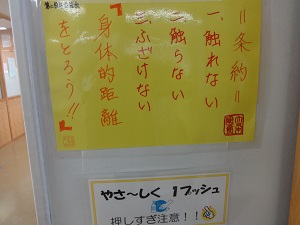 ＝条約＝
一、触れない
二、触らない
三、ふざけない
『身体的距離
をとろう!!』
やさ～しく 1プッシュ
押しすぎ注意!!